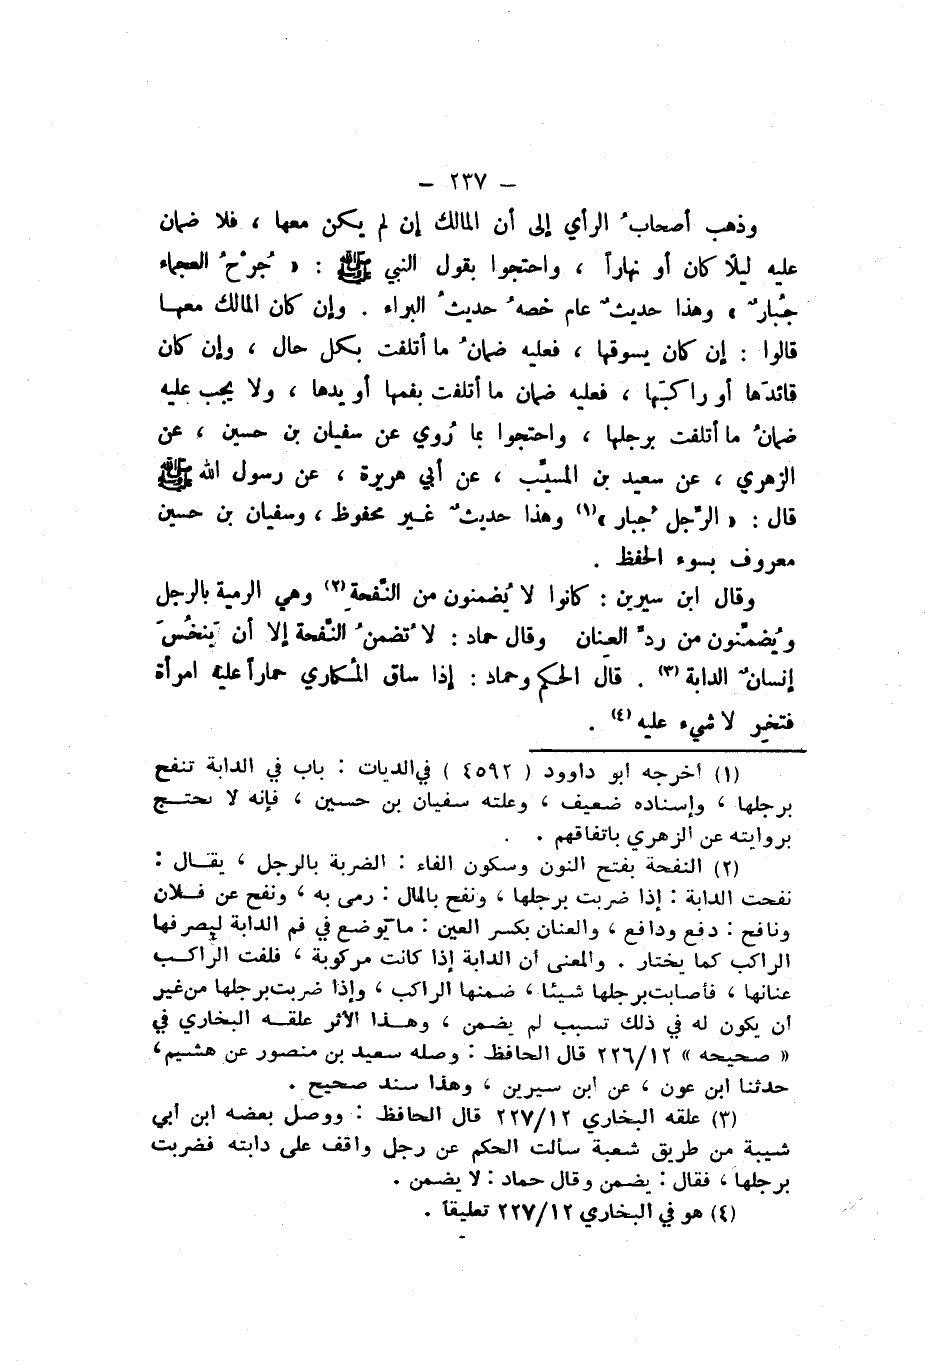 – ٢٣٧ –
وذهب أصحابُ الرأي إلى أن المالك إن لم يكن معها ، فلا ضمان
عليه ليلًا كان أو نهاراً ، واحتجوا بقول النبي ﷺ : « جُرْحُ العجماء
جُبارٌ » وهذا حديثٌ عام خصه حديثُ البراء . وإن كان المالك معهـا
قالوا : إن كان يسوقها ، فعليه ضمانُ ما أتلفت بكل حال ، وإن كان
قائدَها أو راكبَها ، فعليه ضمان ما أتلفت بفمها أو يدها ، ولا يجب عليه
ضمانُ ما أتلفت برجلها ، واحتجوا بما رُوي عن سفيان بن حسين ، عن
الزهري ، عن سعيد بن المسيَّب ، عن أبي هريرة ، عن رسول الله ﷺ
قال : « الرِّجل جُبار »(١) وهذا حديثٌ غـير محفوظ ، وسفيان بن حسين
معروف بسوء الحفظ .
وقال ابن سيرين : كانوا لا يُضمنون من النَّفحة(٢) وهي الرمية بالرجل
ويُضمَّنون من ردِّ العنان وقال حماد : لا تُضمنُ النَّفحة إلا أن يَنخُسَ
إنسانٌ الدابة (٣) . قال الحكم وحماد : إذا ساق المُكاري حماراً عليه امرأة
فتخر لا شيء عليه (٤) .
(١) أخرجه أبو داوود ( ٤٥٩٢ ) في الديات : باب في الدابة تنفح
برجلها ، وإسناده ضعيف ، وعلته سفيان بن حسين ، فإنه لا يحتـج
بروايته عن الزهري باتفاقهم .
(٢) النفحة بفتح النون وسكون الفاء : الضربة بالرجل ، يقـال :
نفحت الدابة : إذا ضربت برجلها ، ونفح بالمال : رمى به ، ونفح عن فـلان
ونافح : دفع ودافع ، والعنان بكسر العين : ما يوضع في فم الدابة ليصرفها
الراكب كما يختار . والمعنى أن الدابة إذا كانت مركوبة ، فلفت الراكـب
عنانها ، فأصابت برجلها شيئا ، ضمنها الراكب ، وإذا ضربت برجلها من غير
أن يكون له في ذلك تسبب لم يضمن ، وهـذا الأثر علقـه البخاري في
« صحيحه » ٢٢٦/١٢ قال الحافظ : وصله سعيد بن منصور عن هشيم ،
حدثنا ابن عون ، عن ابن سيرين ، وهذا سند صحيح .
(٣) علقه البخاري ٢٢٧/١٢ قال الحافظ : ووصل بعضه ابن أبي
شيبة من طريق شعبة سألت الحكم عن رجل واقف على دابته فضربت
برجلها ، فقال : يضمن وقال حماد : لا يضمن .
(٤) هو في البخاري ٢٢٧/١٢ تعليقاً .